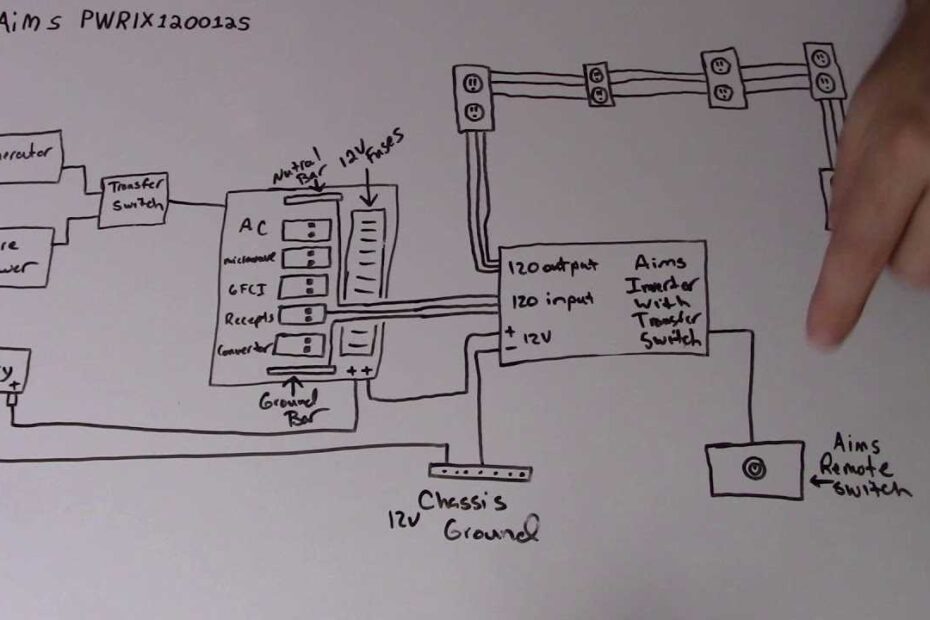 Aims PWRIX120012S
Nutral
Bar
12V
Fuses
Transfer
Switch
AC
microwave
GFCI
Recepts
Convertor
+ +
Ground
Bar
120 output
120 input
+
12V
-
Aims
Invertor
with
Transfer
Switch
+
12V
Chassis
Ground
Aims
Remote
Switch